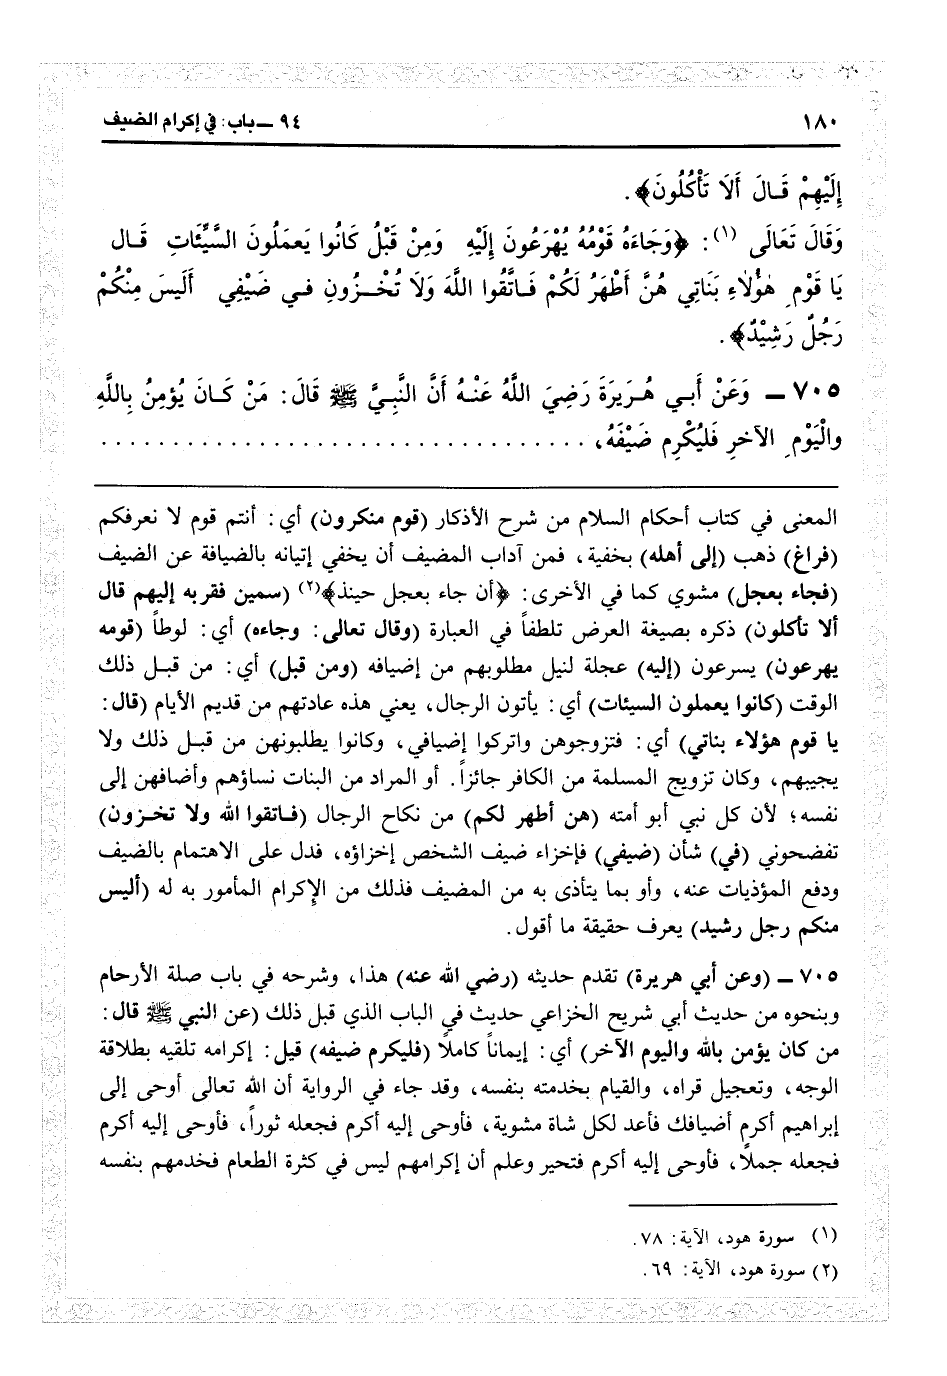 ١٨٠
٩٤ ــ باب: في إكرام الضيف
إِلَيْهِمْ قَـالَ أَلَا تَأْكُلُونَ﴾.
وَقَالَ تَعَالَى (١): ﴿وَجَاءَهُ قَوْمُهُ يُهْرَعُونَ إِلَيْهِ وَمِنْ قَبْلُ كَانُوا يَعمَلُونَ السَّيِّئَاتِ قَـال
يَا قَوْمِ هٰؤُلَاءِ بَنَاتِي هُنَّ أَطْهَرُ لَكُمْ فَـاتَّقُوا اللَّهَ وَلَا تُخْـزُونِ فـي ضَيْفِي أَلَيسَ مِنْكُمْ
رَجُلٌ رَشِيْدٌ﴾.
٧٠٥ ــ وَعَنْ أَبـي هُـرَيرَةَ رَضِيَ اللَّهُ عَنْـهُ أَنَّ النَّبِيَّ ﷺ قَالَ: مَنْ كَـانَ يُؤمِنُ بِاللَّهِ
والْيَوْمِ الآخرِ فَليُكْرِم ضَيْفَهُ، . . . . . . . . . . . . . . . . . . . . . . . . . . . . . . . . . .
المعنى في كتاب أحكام السلام من شرح الأذكار (قوم منكرون) أي: أنتم قوم لا نعرفكم
(فراغ) ذهب (إلى أهله) بخفية، فمن آداب المضيف أن يخفي إتيانه بالضيافة عن الضيف
(فجاء بعجل) مشوي كما في الأخرى: ﴿أن جاء بعجل حينذ﴾(٢) (سمين فقربه إليهم قال
ألا تأكلون) ذكره بصيغة العرض تلطفاً في العبارة (وقال تعالى: وجاءه) أي: لوطاً (قومه
يهرعون) يسرعون (إليه) عجلة لنيل مطلوبهم من إضيافه (ومن قبل) أي: من قبـل ذلك
الوقت (كانوا يعملون السيئات) أي: يأتون الرجال، يعني هذه عادتهم من قديم الأيام (قال:
يا قوم هؤلاء بناتي) أي: فتزوجوهن واتركوا إضيافي، وكانوا يطلبونهن من قبـل ذلك ولا
يجيبهم، وكان تزويج المسلمة من الكافر جائزاً. أو المراد من البنات نساؤهم وأضافهن إلى
نفسه؛ لأن كل نبي أبو أمته (هن أطهر لكم) من نكاح الرجال (فـاتقوا الله ولا تخـزون)
تفضحوني (في) شأن (ضيفي) فإخزاء ضيف الشخص إخزاؤه، فدل على الاهتمام بالضيف
ودفع المؤذيات عنه، وأو بما يتأذى به من المضيف فذلك من الإكرام المأمور به له (أليس
منكم رجل رشيد) يعرف حقيقة ما أقول.
٧٠٥ ــ (وعن أبي هريرة) تقدم حديثه (رضي الله عنه) هذا، وشرحه في باب صلة الأرحام
وبنحوه من حديث أبي شريح الخزاعي حديث في الباب الذي قبل ذلك (عن النبي ﷺ قال:
من كان يؤمن بالله واليوم الآخر) أي: إيماناً كاملًا (فليكرم ضيفه) قيل: إكرامه تلقيه بطلاقة
الوجه، وتعجيل قراه، والقيام بخدمته بنفسه، وقد جاء في الرواية أن الله تعالى أوحى إلى
إبراهيم أكرم أضيافك فأعد لكل شاة مشوية، فأوحى إليه أكرم فجعله ثوراً، فأوحى إليه أكرم
فجعله جملًا، فأوحى إليه أكرم فتحير وعلم أن إكرامهم ليس في كثرة الطعام فخدمهم بنفسه
(١) سورة هود، الآية: ٧٨.
(٢) سورة هود، الآية: ٦٩.